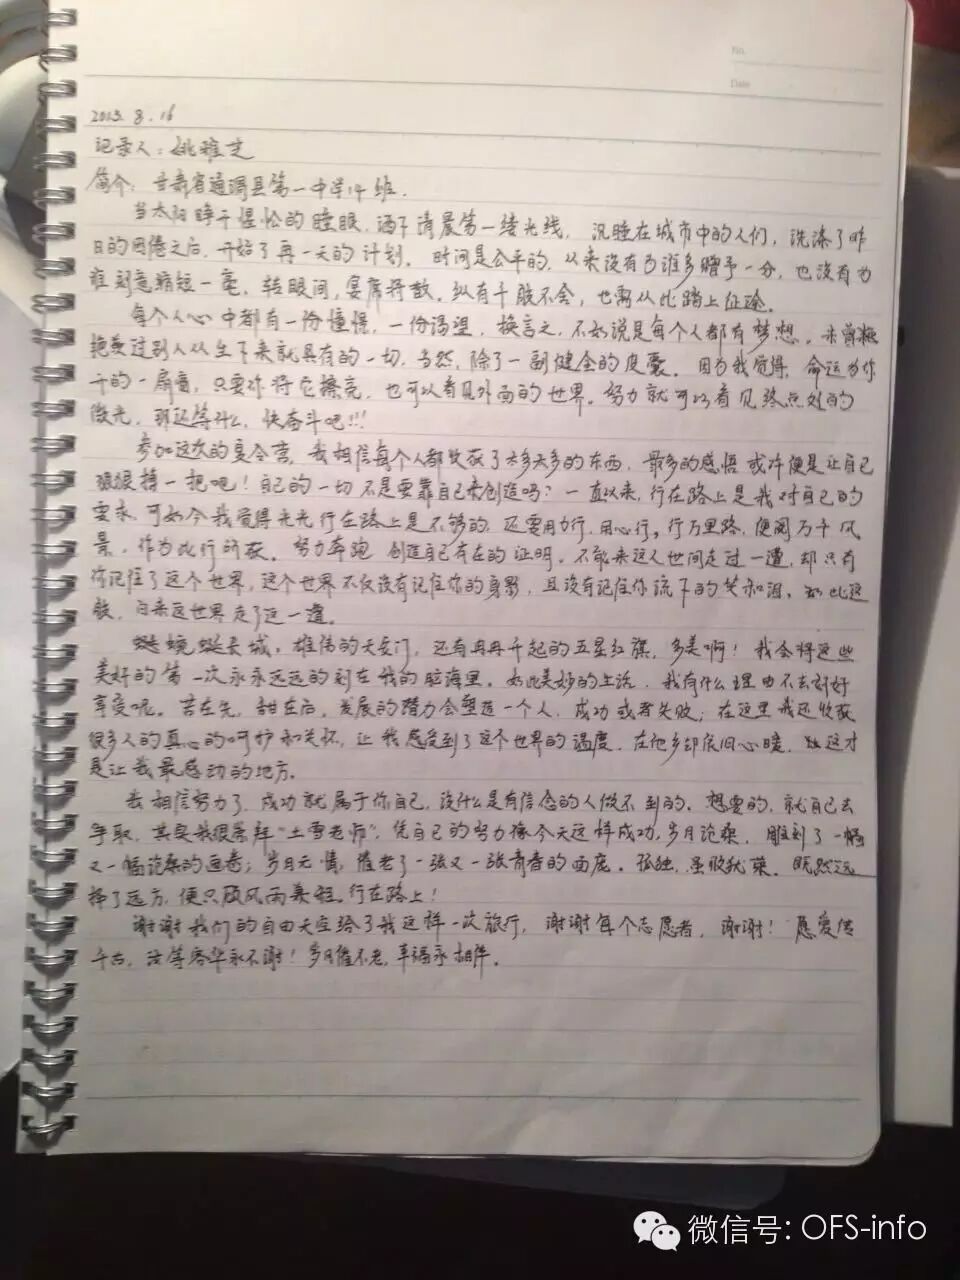 No.
Date
2015. 8. 16
记录人：姚雅芝
简介：甘肃省通渭县第一中学14班.
当太阳睁开惺忪的睡眼，洒下清晨第一缕光线，沉睡在城市中的人们，洗涤了昨
日的困倦之后，开始了再一天的计划。时间是公平的，从来没有为谁多赠予一分，也没有为
谁刻意缩短一毫，转眼间，宴席将散。纵有千般不舍，也需从此踏上征途。
每个人心中都有一份憧憬，一份渴望，换言之，不如说是每个人都有梦想。未曾
艳羡过别人从生下来就具有的一切，当然，除了一副健全的皮囊。因为我觉得，命运为你
开的一扇窗，只要你将它擦亮，也可以看见外面的世界。努力就可以看见终点处的
微光，那还等什么，快奋斗吧!!!
参加这次的夏令营，我相信每个人都收获了太多太多的东西，最多的感悟或许便是让自己
狠狠拼一把吧！自己的一切不是要靠自己来创造吗？一直以来，行在路上是我对自己的
要求，可如今我觉得光光行在路上是不够的，还要用力行，用心行。行万里路，便阅万千风
景，作为此行所获。努力奔跑，创造自己存在的证明。不能来这人世间走过一遭，却只有
你记住了这个世界，这个世界不仅没有记住你的身影，且没有记住你流下的笑和泪。如此这
般，白来这世界走了这一遭。
蜿蜒长城，雄伟的天安门，还有冉冉升起的五星红旗，多美啊！我会将这些
美好的第一次永永远远的刻在我的脑海里。如此美妙的生活，我有什么理由不去好好
享受呢。苦在先，甜在后，发展的潜力会塑造一个人，成功或者失败；在这里我还收获
很多人的真心的呵护和关怀，让我感受到了这个世界的温度，在他乡却依旧心暖，这才
是让我最感动的地方。
我相信努力了，成功就属于你自己，没什么是有信念的人做不到的。想要的，就自己去
争取，其实我很崇拜“土雪老师”，凭自己的努力像今天这样成功，岁月沧桑，雕刻了一幅
又一幅沧桑的画卷；岁月无情，催老了一张又一张青春的面庞。孤独，虽败犹荣。既然选
择了远方，便只顾风雨兼程。行在路上！
谢谢我们的自由天空给了我这样一次旅行，谢谢每个志愿者，谢谢！愿爱传
千古，汝等容华永不谢！岁月催不老，幸福永相伴。
微信号: OFS-info